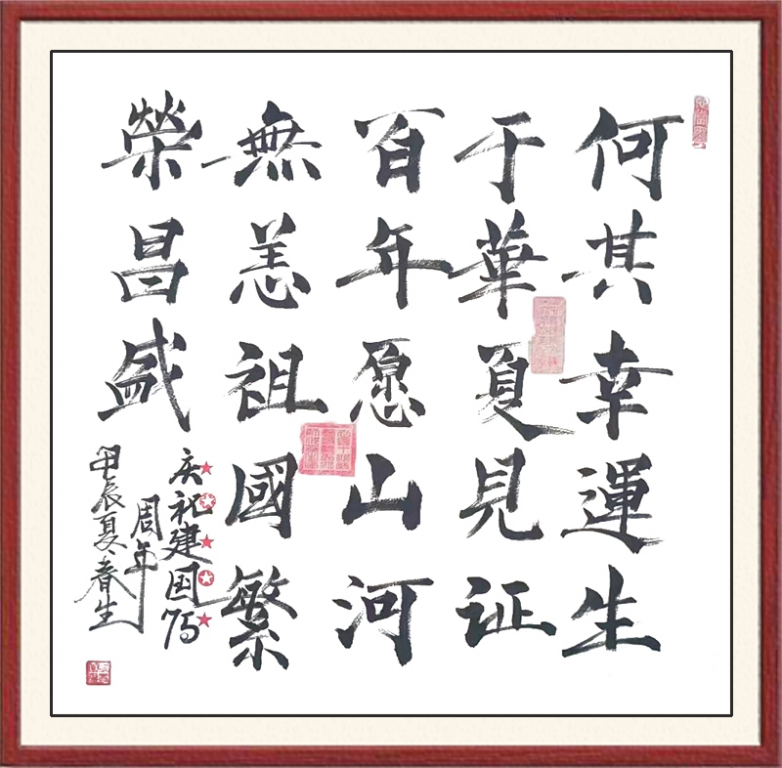 何其幸運生
于華夏見证
百年愿山河
無恙祖國繁
榮昌盛
庆祝建国75
周年
甲辰夏春生